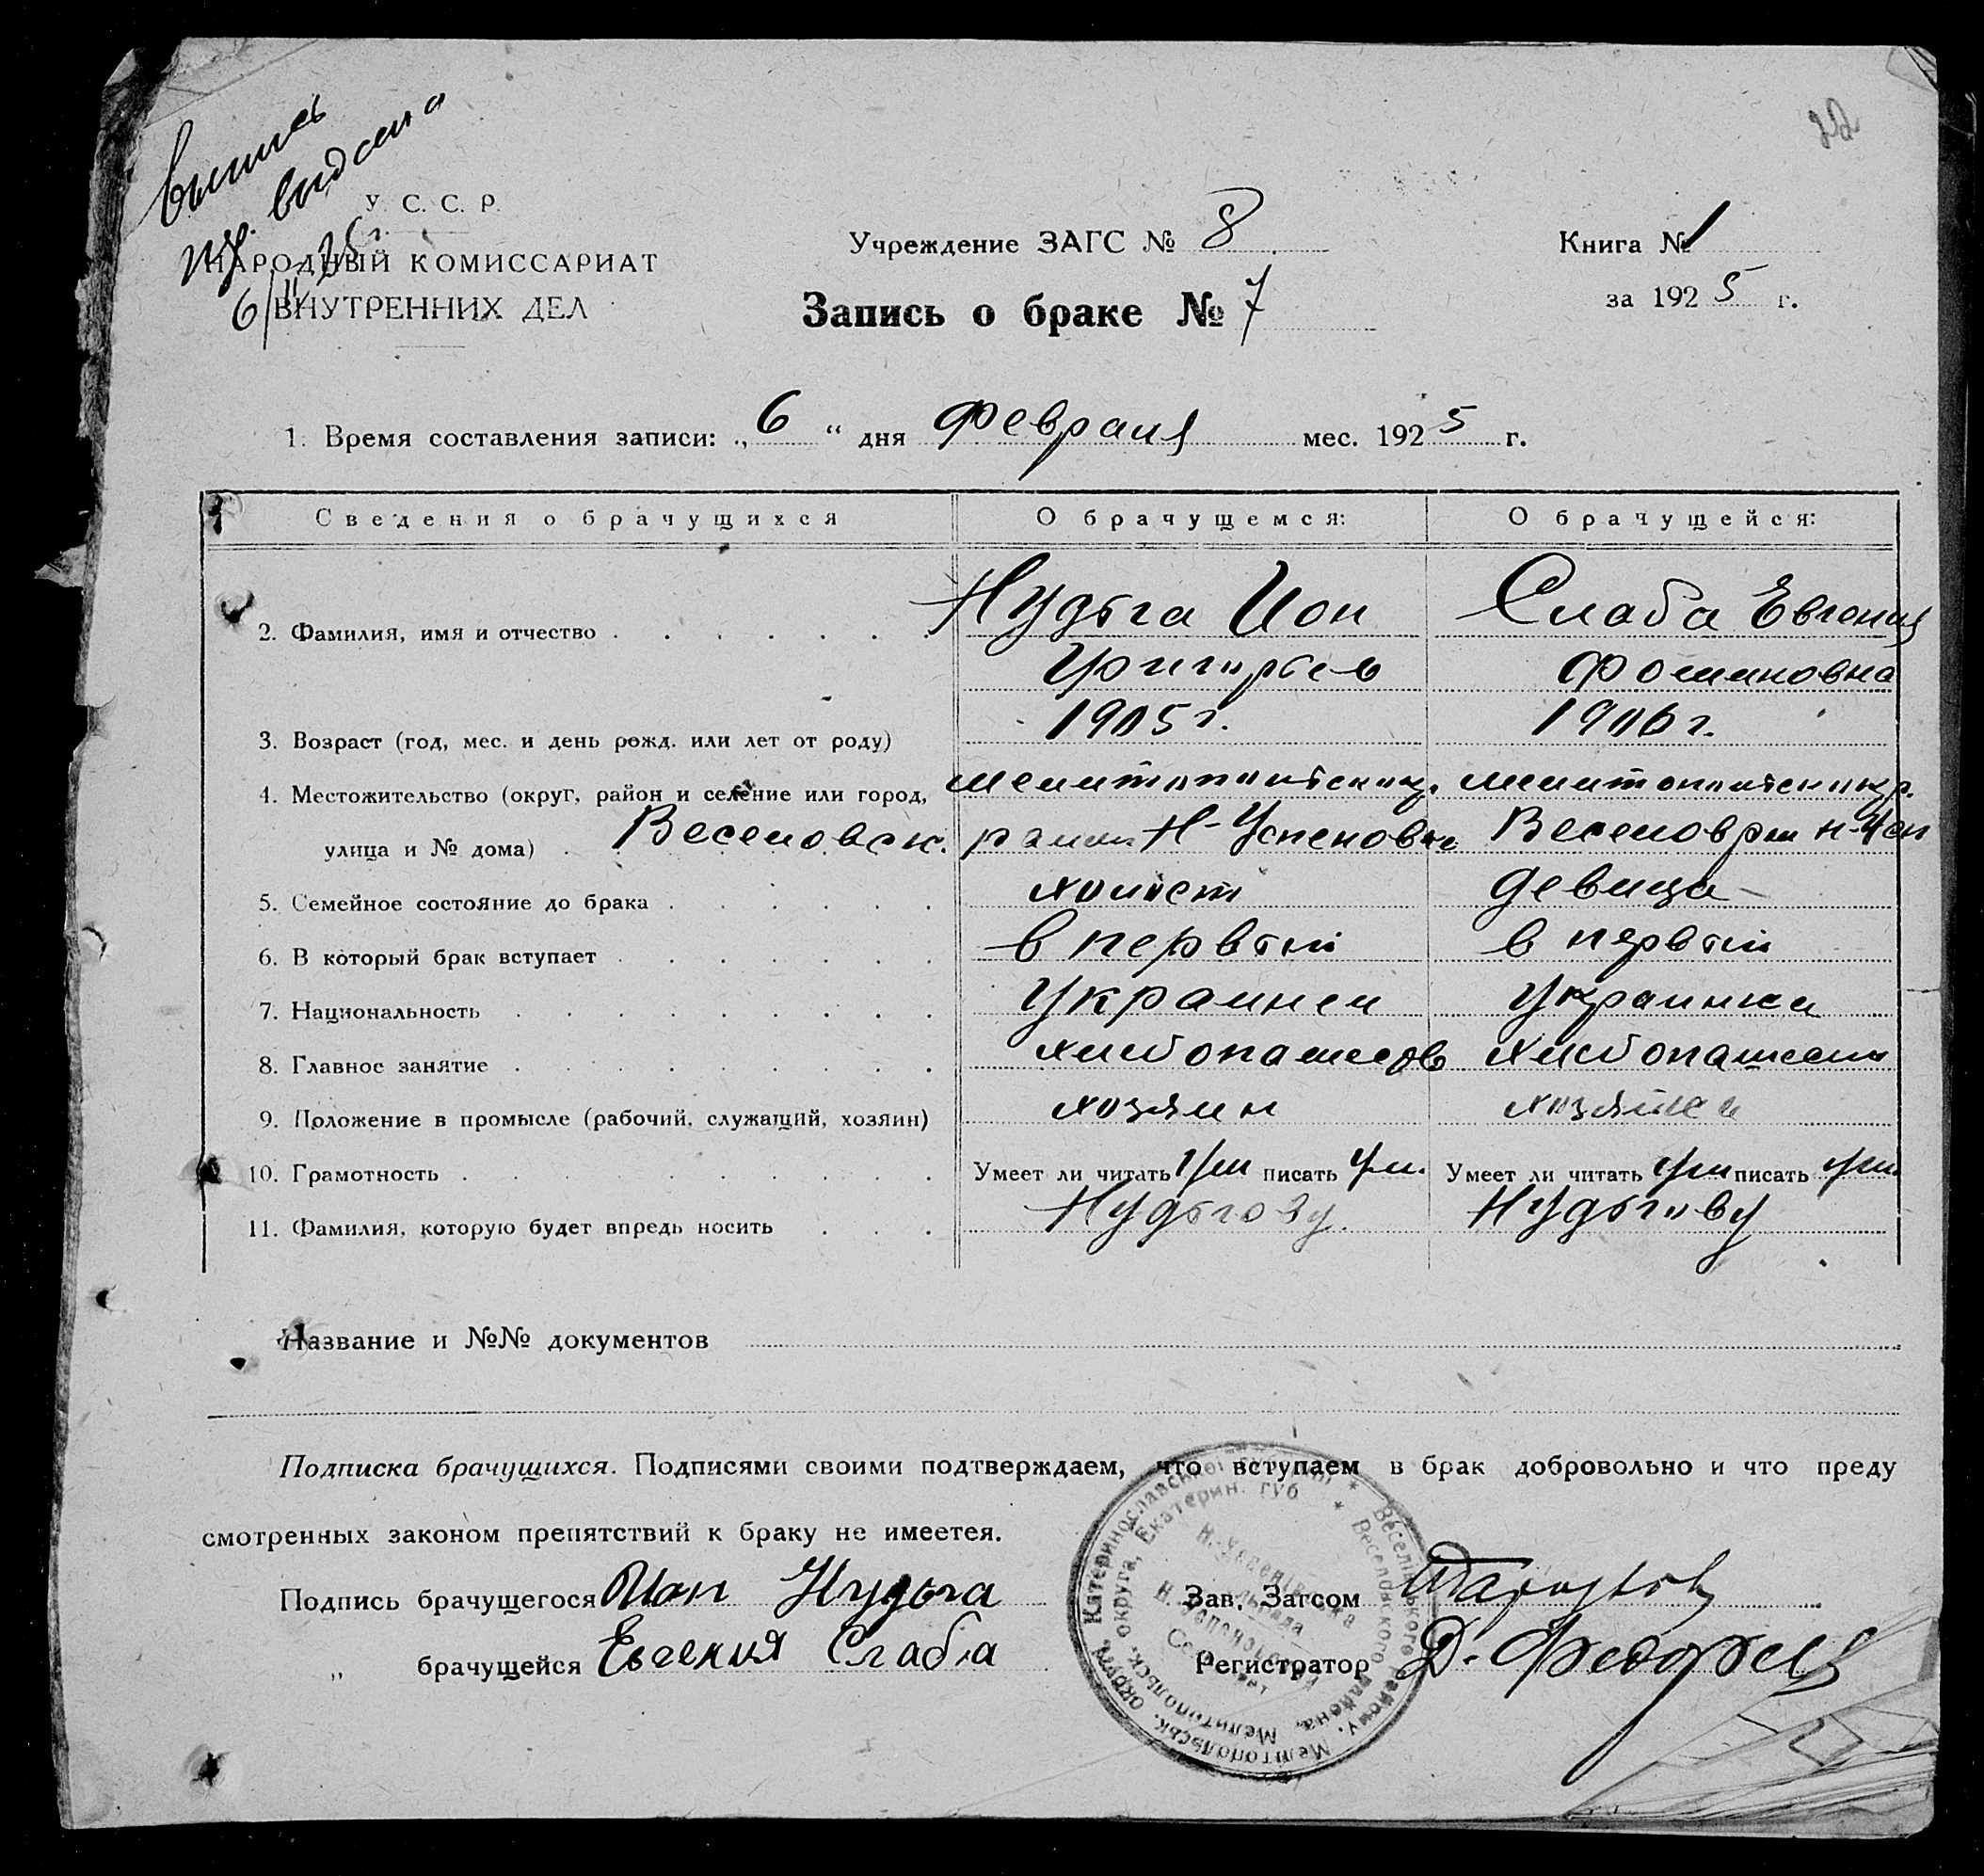 Выпись
выдана
6/II 25г.
У. С. С. Р.
НАРОДНЫЙ КОМИССАРИАТ
ВНУТРЕННИХ ДЕЛ
Учреждение ЗАГС № 8
Книга № 1
Запись о браке № 7
за 1925 г.
1. Время составления записи: „6“ дня Февраля мес. 1925 г.
Сведения о брачущихся О брачущемся: О брачущейся:
2. Фамилия, имя и отчество Нудьга Ион Слаба Евгения
Григорьев Фоминовна
3. Возраст (год, мес. и день рожд. или лет от роду) 1905 г. 1906 г.
4. Местожительство (округ, район и селение или город, Мелитопольск окр. Мелитопольск окр.
улица и № дома) Веселовск. район Н-Успеновка Веселов рай Н-Усп
5. Семейное состояние до брака холост девица
6. В который брак вступает в первый в первый
7. Национальность Украинец Украинка
8. Главное занятие хлебопашество хлебопашест
9. Положение в промысле (рабочий, служащий, хозяин) хозяин хозяйка
10. Грамотность Умеет ли читать ум писать ум. Умеет ли читать ум писать ум.
11. Фамилия, которую будет впредь носить Нудьгову. Нудьгову
Название и №№ документов
Подписка брачущихся. Подписями своими подтверждаем, что вступаем в брак добровольно и что преду
смотренных законом препятствий к браку не имеетея.
Подпись брачущегося Ион Нудьга Зав. Загсом
„ брачущейся Евгения Слаба Регистратор Д.
Катеринославської губ. * Веселівського району, Мелітопольськ. округи,
Екатерин. губ * Веселовского района, Мелитопольск. округа,
Н.-Успенівська
сільрада
Н. Успеновский
Сельсовет